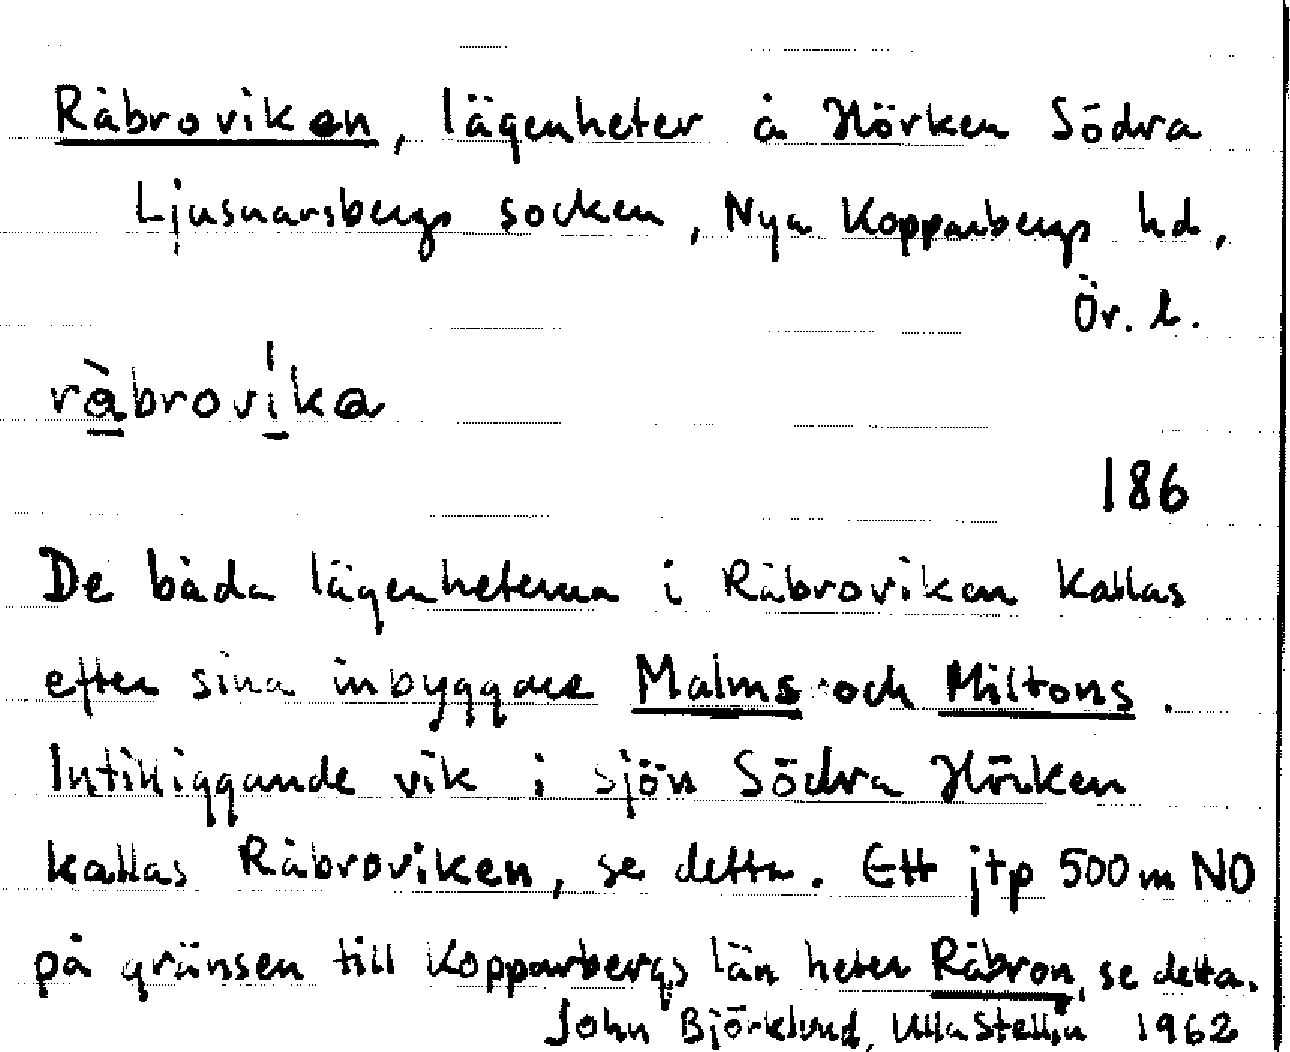 Råbroviken, lägenheter å Hörken Södra
Ljusnarsbergs socken, Nya Kopparbergs hd,
Ör. l.
rå̀brovíka
186
De båda lägenheterna i Råbroviken kallas
efter sina inbyggare Malms och Miltons.
Intilliggande vik i sjön Södra Hörken
kallas Råbroviken, se detta. Ett jtp 500 m NO
på gränsen till Kopparbergs län heter Råbron, se detta.
John Björklund, Ulla Stellin 1962